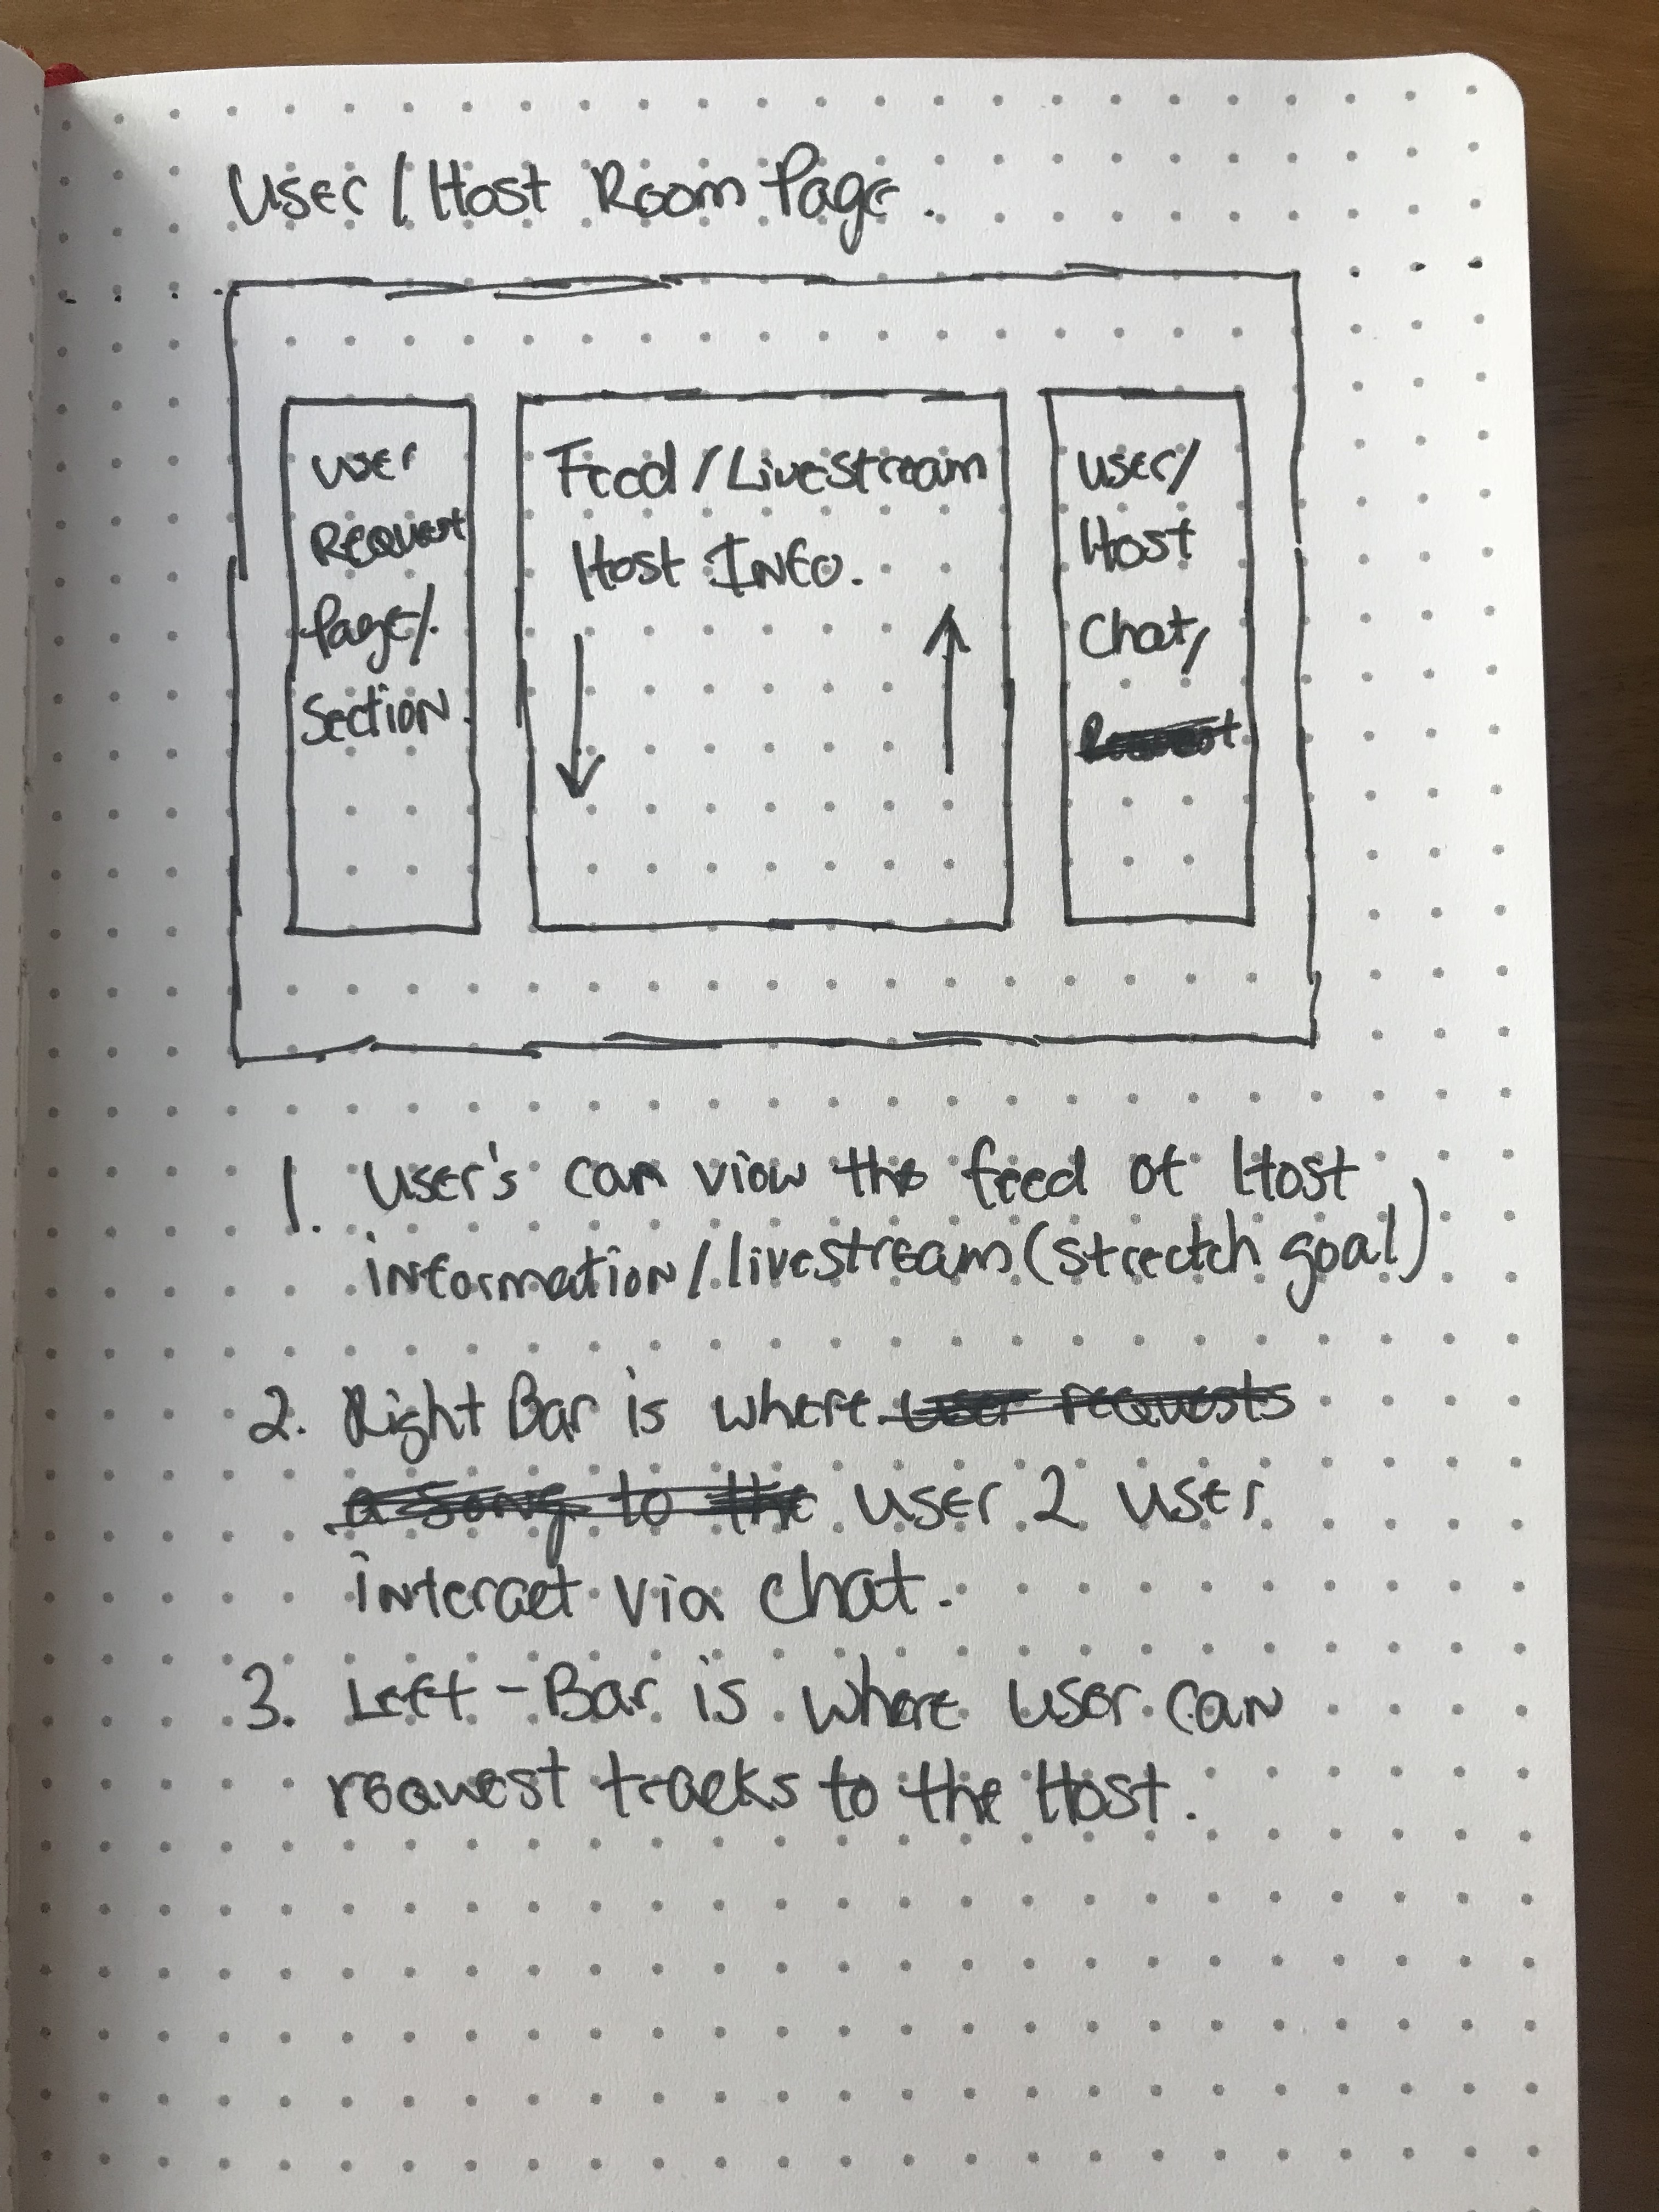 User / Host Room Page.
User
Request
Page/
Section.
Feed / Livestream
Host Info.
User/
Host
Chat/
Request
1. User's can view the feed of Host
information / livestream (stretch goal)
2. Right Bar is where user requests
a song to the user 2 user
interact via chat.
3. Left - Bar is where user can
request tracks to the Host.